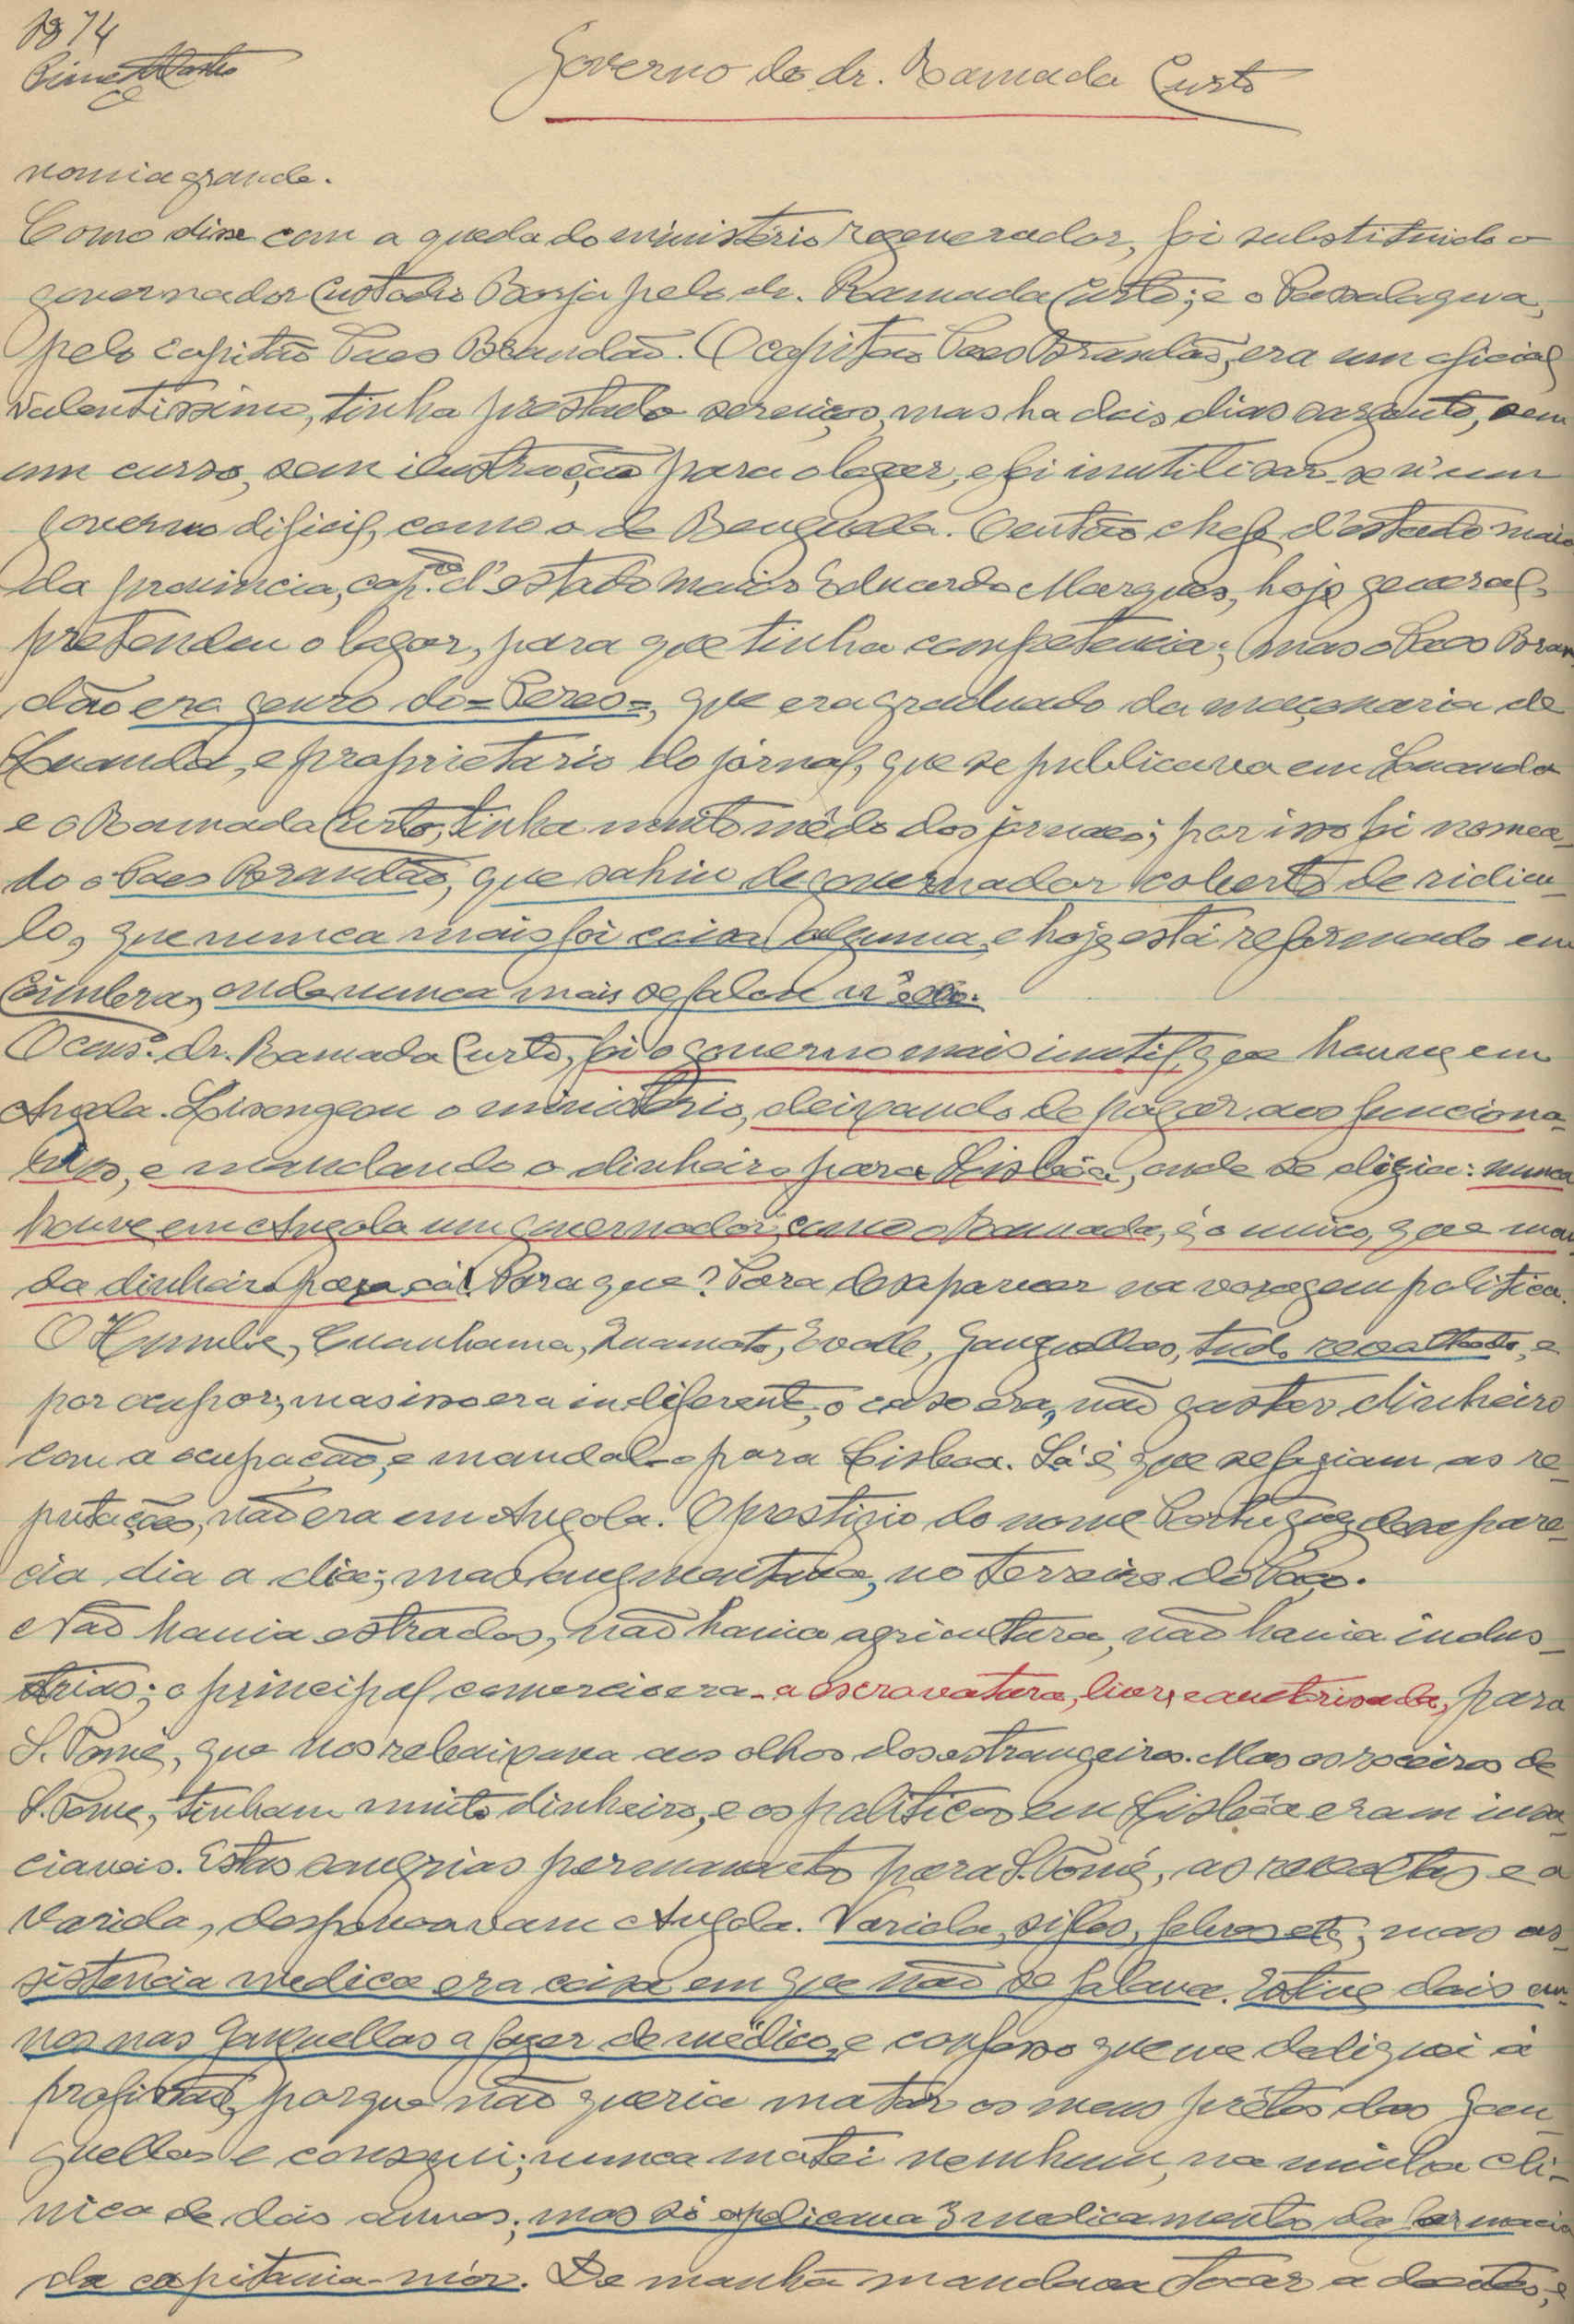 1874
Governo do dr. Ramada Curto
nomia grande.
Como disse com a queda do ministério regenerador, foi substituido o
governador Custodio Borja pelo dr. Ramada Curto; e o Passalagua,
pelo capitão Paes Brandão. O capitão Paes Brandão, era um oficial
valentissimo, tinha prestado serviços, mas ha dois dias sargento, sem
um curso, sem ilustração para o logar, e foi inutilisar-se n'um
governo dificil, como o de Benguella. O então chefe d'estado maior
da provincia, cap.ão d'estado maior Eduardo Marques, hoje general,
pretendeu o logar, para que tinha competencia; mas o Paes Bran-
dão era genro do = Peres =, que era graduado da maçonaria de
Luanda, e proprietario do jornal, que se publicava em Loanda
e o Ramada Curto, tinha muito mêdo dos jornaes; por isso foi nomea-
do o Paes Brandão, que sahiu de governador coberto de ridicu-
lo, que nunca mais foi coisa alguma, e hoje está reformado em
Coimbra, onde nunca mais se falou n'elle.
O cons.º dr. Ramada Curto, foi o governo mais inutil, que houve em
Angola. Lisongeou o ministério, deixando de pagar aos funciona-
rios, e mandando o dinheiro para Lisbôa, onde se dizia: nunca
houve em Angola um governador, como o Ramada, é o unico, que man-
da dinheiro para cá! Para que? Para desaparecer na voragem politica.
O Humbe, Cuanhama, Cuamato, Evalle, Ganguellas, tudo revoltado, e
por ocupar; mas isso era indiferente, o caso era, não gastar dinheiro
com a ocupação, e mandal-o para Lisboa. Lá é que se faziam as re-
putações, não era em Angola. O prestigio do nome Portuguez desapare-
cia dia a dia; mas augmentava, no Terreiro do Paço.
Não havia estradas, não havia agricultura, não havia indus-
trias; o principal comercio era - a escravatura, livre e auctorisada, para
S. Tomé, que nos rebaixava aos olhos dos estrangeiros. Mas os roceiros de
S. Tomé, tinham muito dinheiro, e os politicos em Lisbôa eram insa-
ciaveis. Estas sangrias permanentes para S. Tomé, as revoltas e a
variola, despovoavam Angola. Variola, sifles, febres etc; mas as-
sistencia medica era coisa em que não se falava. Estive dois an-
nos nas Ganguellas a fazer de médico, e confesso que me deliguei á
profissão, porque não queria matar os meus prêtos das Gan-
guellas e consegui; nunca matei nenhum, na minha cli-
nica de dois annos; mas só aplicava 3 medicamentos da farmacia
da capitania-mór. De manhã mandava tocar a doentes, e